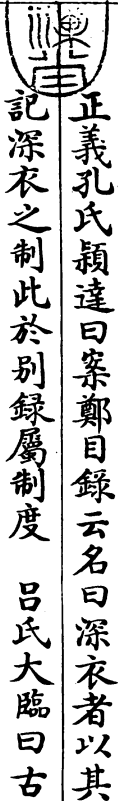 正義孔氏穎達曰案鄭目錄云名曰深衣者以其
記深衣之制此於別錄屬制度　呂氏大臨曰古